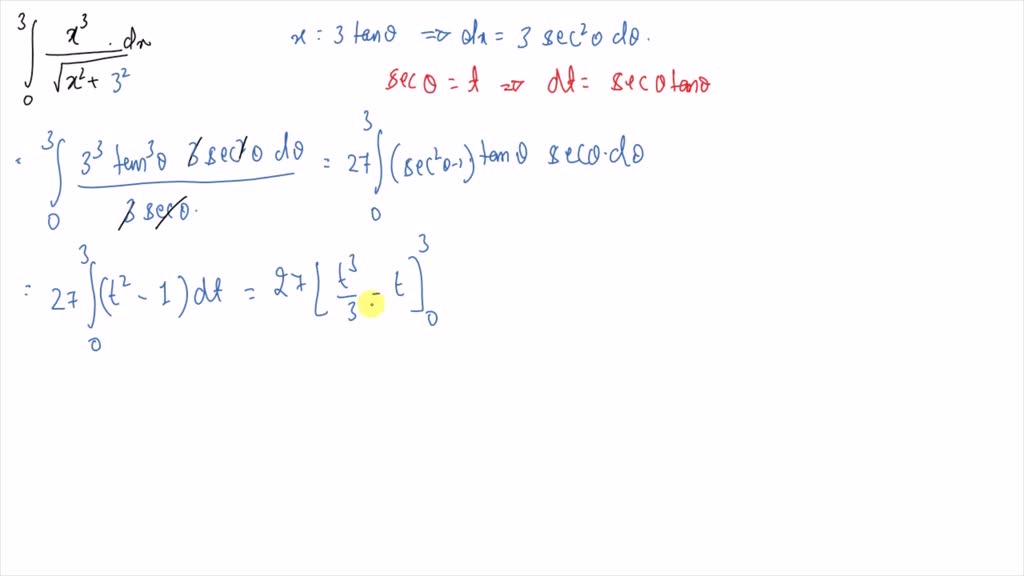 ∫₀³ x³ . dx / √x² + 3²
x = 3 tanθ ⇒ dx = 3 sec²θ dθ.
secθ = t ⇒ dt = secθ tanθ
= ∫₀³ 3³ tan³θ 3 sec²θ dθ / 3 secθ. = 27 ∫₀³ (sec²θ-1) tanθ secθ.dθ
= 27 ∫₀³ (t² - 1) dt = 27 [t³/3 - t]₀³